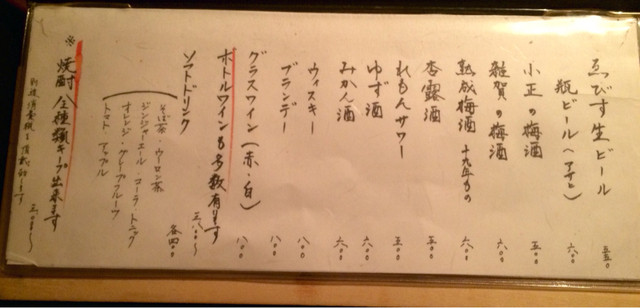 ゑびす生ビール 五五〇
瓶ビール(アサヒ) 六〇〇
小正の梅酒 五〇〇
雑賀の梅酒 六〇〇
熟成梅酒 十九年もの 六〇〇
杏露酒 五〇〇
れもんサワー 五〇〇
ゆず酒 六〇〇
みかん酒 六〇〇
ウィスキー 八〇〇
ブランデー 八〇〇
グラスワイン(赤・白) 八〇〇
ボトルワインも多数有ります 三、八〇〇〜
ソフトドリンク 各四〇〇
そば茶・ウーロン茶
ジンジャーエール・コーラ・トニック
オレンジ・グレープフルーツ
トマト・アップル
※焼酎全種類キープ出来ます 三、〇〇〇〜
別途消費税を頂戴致します